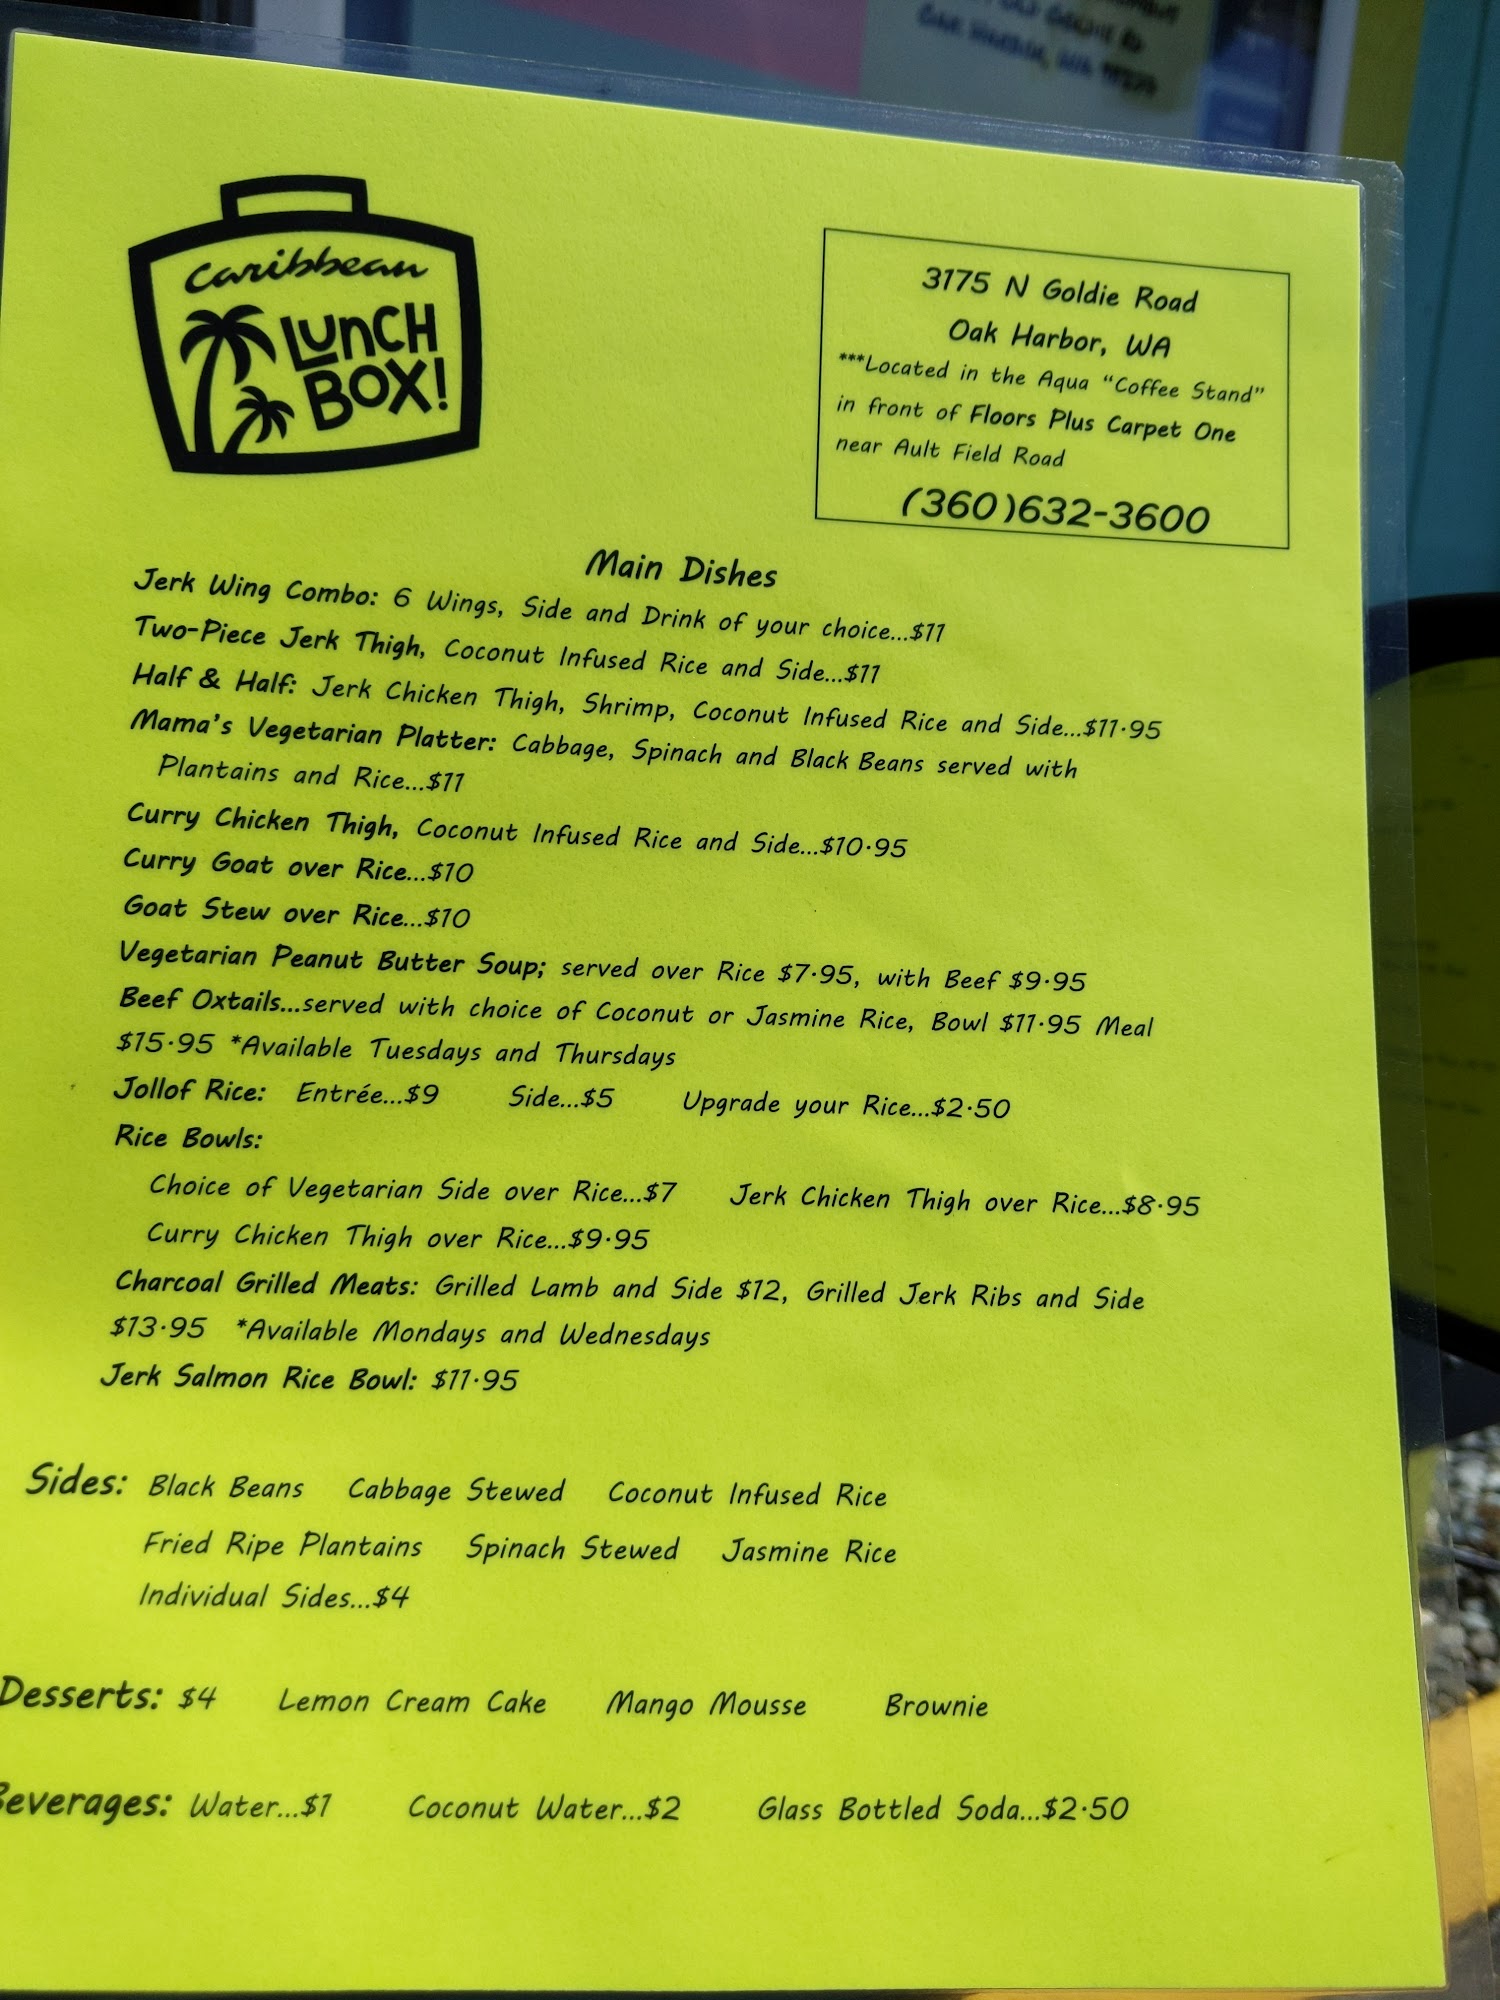 OLD GOLDIE RD
OAK HARBOR, WA
Caribbean
LUNCH
BOX!
3175 N Goldie Road
Oak Harbor, WA
***Located in the Aqua “Coffee Stand”
in front of Floors Plus Carpet One
near Ault Field Road
(360)632-3600
Main Dishes
Jerk Wing Combo: 6 Wings, Side and Drink of your choice...$11
Two-Piece Jerk Thigh, Coconut Infused Rice and Side...$11
Half & Half: Jerk Chicken Thigh, Shrimp, Coconut Infused Rice and Side...$11.95
Mama’s Vegetarian Platter: Cabbage, Spinach and Black Beans served with
Plantains and Rice...$11
Curry Chicken Thigh, Coconut Infused Rice and Side...$10.95
Curry Goat over Rice...$10
Goat Stew over Rice...$10
Vegetarian Peanut Butter Soup; served over Rice $7.95, with Beef $9.95
Beef Oxtails...served with choice of Coconut or Jasmine Rice, Bowl $11.95 Meal
$15.95 *Available Tuesdays and Thursdays
Jollof Rice: Entrée...$9 Side...$5 Upgrade your Rice...$2.50
Rice Bowls:
Choice of Vegetarian Side over Rice...$7 Jerk Chicken Thigh over Rice...$8.95
Curry Chicken Thigh over Rice...$9.95
Charcoal Grilled Meats: Grilled Lamb and Side $12, Grilled Jerk Ribs and Side
$13.95 *Available Mondays and Wednesdays
Jerk Salmon Rice Bowl: $11.95
Sides: Black Beans Cabbage Stewed Coconut Infused Rice
Fried Ripe Plantains Spinach Stewed Jasmine Rice
Individual Sides...$4
Desserts: $4 Lemon Cream Cake Mango Mousse Brownie
Beverages: Water...$1 Coconut Water...$2 Glass Bottled Soda...$2.50